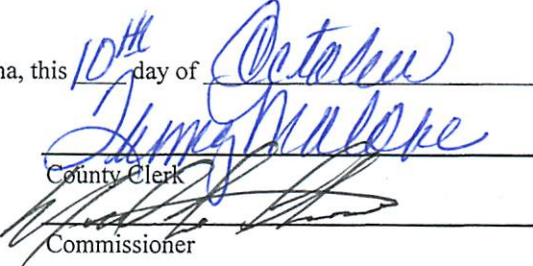 na, this 10th day of October
Malone
County Clerk
Commissioner